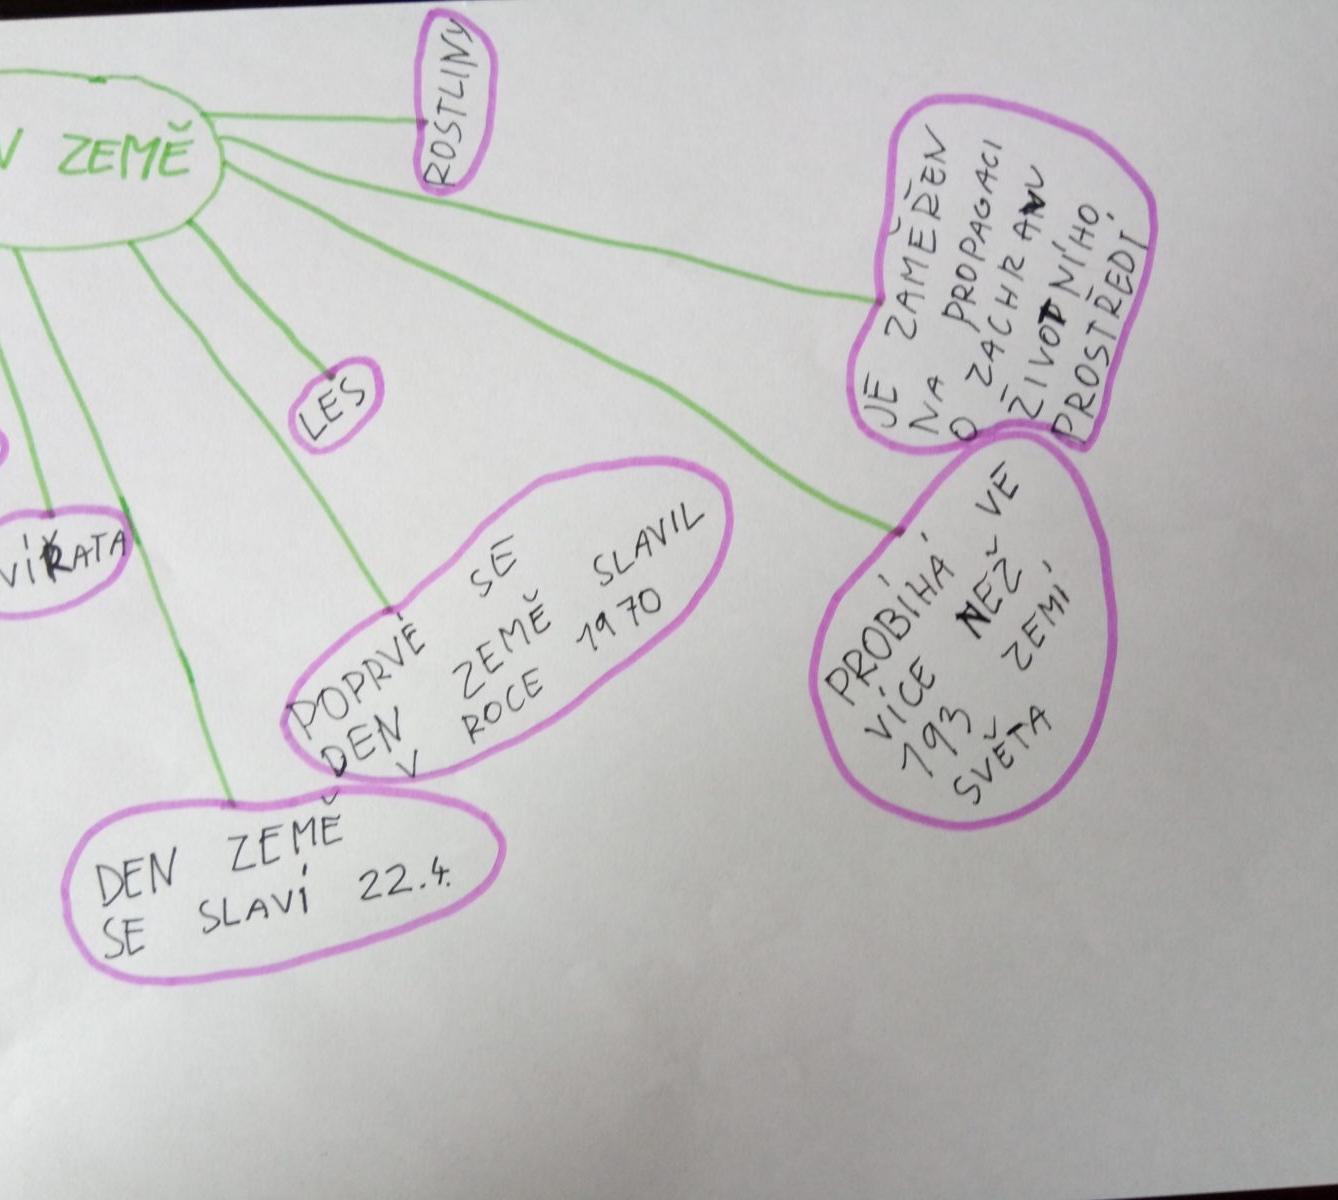 V ZEMĚ
ROSTLINY
JE ZAMĚŘEN
NA PROPAGACI
O ZÁCHRANU
ŽIVOTNÍHO
PROSTŘEDÍ
LES
VÍŘATA
PROBÍHÁ VE
VÍCE NEŽ
193 ZEMÍ
SVĚTA
POPRVÉ SE
DEN ZEMĚ SLAVIL
V ROCE 1970
DEN ZEMĚ
SE SLAVÍ 22.4.